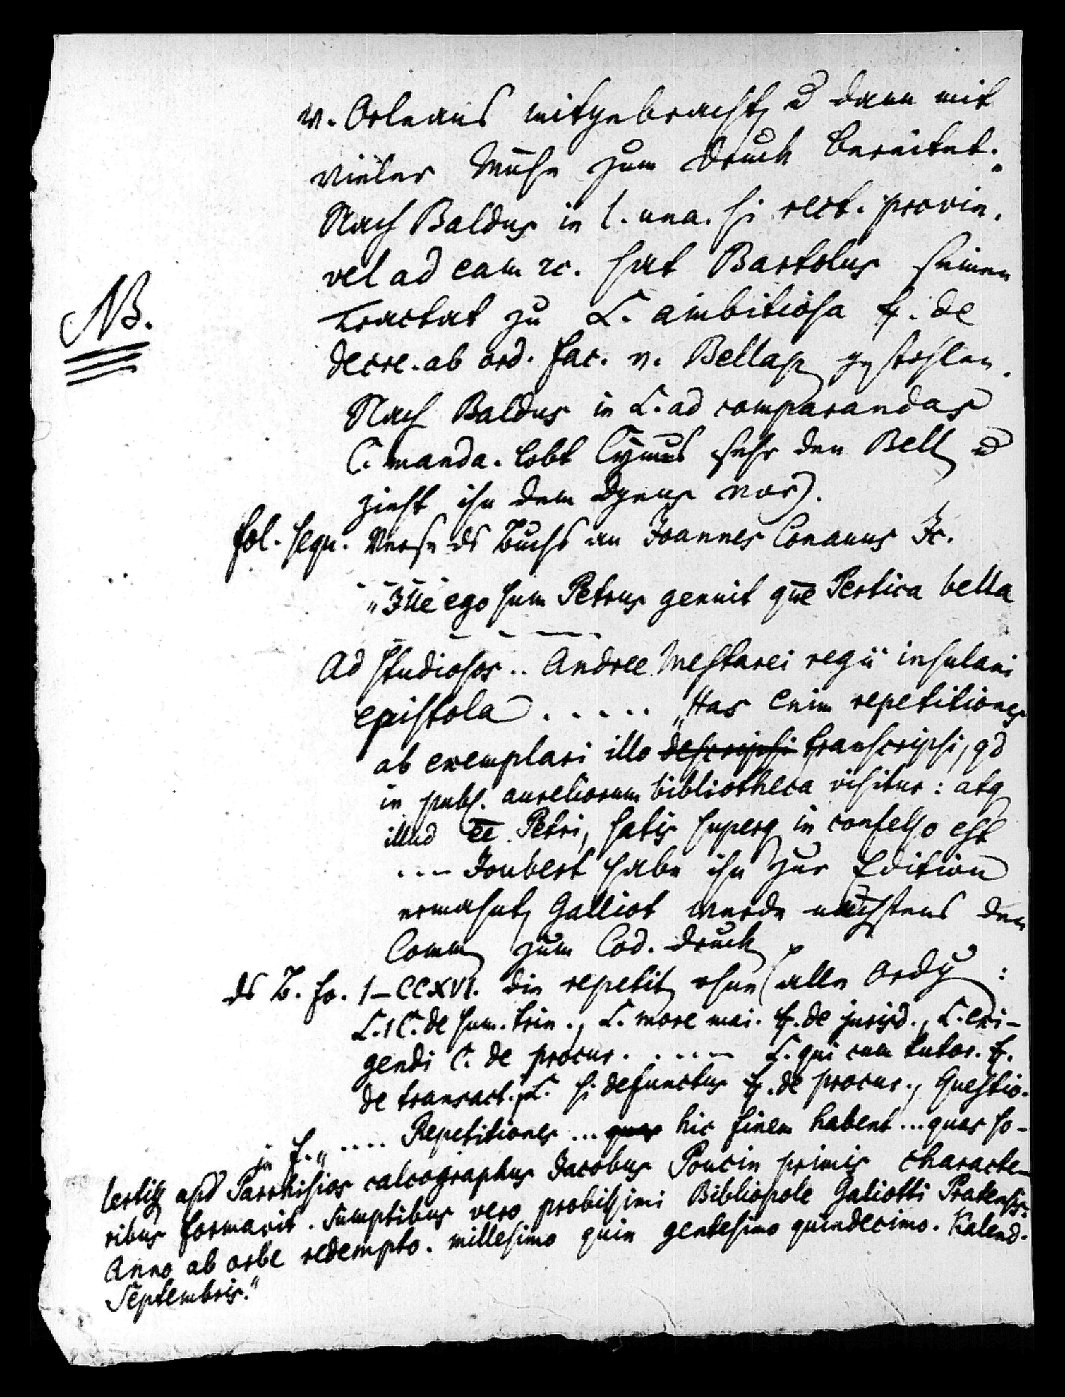 v. Orleans mitgebracht, u dann mit
vieler Mühe zum Druck bereitet."
Nach Baldus in l. una. si rect. provin.
vel ad eam rc. hat Bartolus seinen
Tractat zu L. ambitiosa ff. de
decre. ab ord. fac. v. Bellap, gestohlen.
NB.
Nach Baldus in L. ad comparandas
C. manda. lobt Cynus sehr den Bell, u
zieht ihn dem Dynus vor).
fol. sequ. Verse ds Buchs an Joannes Conanus Jc.
"Ille ego sum Petrus genuit que Pertica bella
Ad studiosos .. Andree regii insulani
epistola ..... "Has enim repetitiones
ab exemplari illo descripsi transcripsi, qd
in publ. aureliorum bibliotheca visitur: atq
illud Petri, satis superq in confesso est
--- Joubert habe ihn zur Edition
ermahnt, Galliot werde nächstens den
Comm, zum Cod. druck
ds B. fo. I-CCXVI. die repetit, ohne alle Ordg:
L. 1 C. de sum. trin., L. more mai. ff. de jurisd., L. exi-
gendi C. de procur. ..... L. qui cum tutor. ff.
de transact., L. si defunctus ff. de procur., Questio.
in f. " .... Repetitiones ... quas hic finem habent ... quas so-
lertiss apd Parrhisios calcographus Jacobus Poucin primis characte-
ribus formavit. Sumptibus vero probissimi Bibliopole Galiotti Pratensis.
Anno ab orbe redempto. millesimo quin gentesimo quindecimo. Kalend.
Septembris."